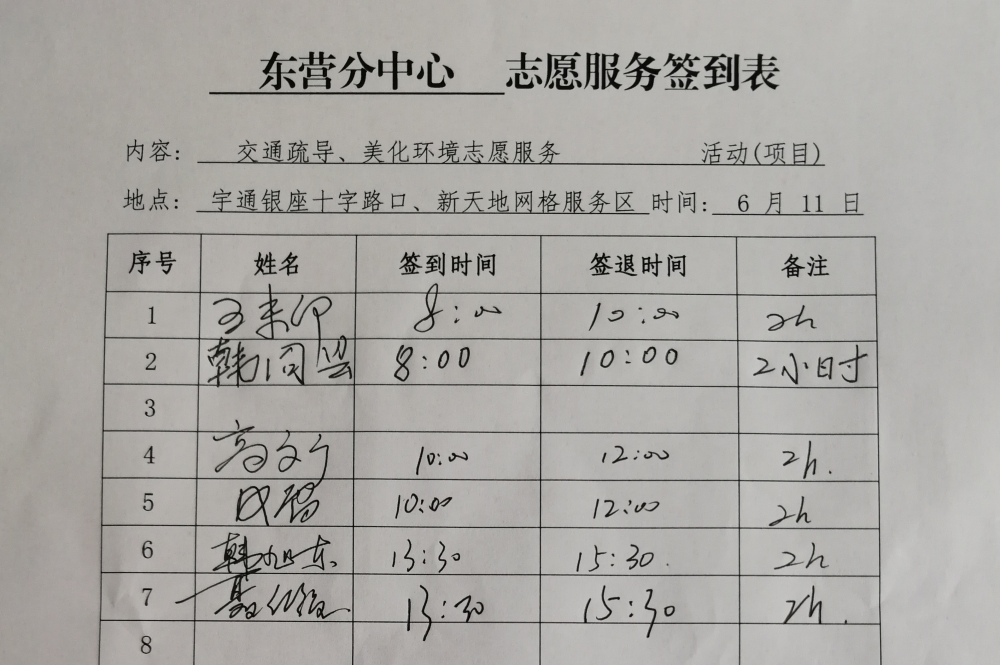 东营分中心 志愿服务签到表
内容: 交通疏导、美化环境志愿服务 活动(项目)
地点: 宇通银座十字路口、新天地网格服务区 时间: 6 月 11 日
序号 姓名 签到时间 签退时间 备注
1 王来印 8:00 10:00 2h
2 韩同兴 8:00 10:00 2小时
3
4 高文 10:00 12:00 2h.
5 10:00 12:00 2h
6 韩旭东 13:30 15:30. 2h
7 13:30 15:30 2h.
8